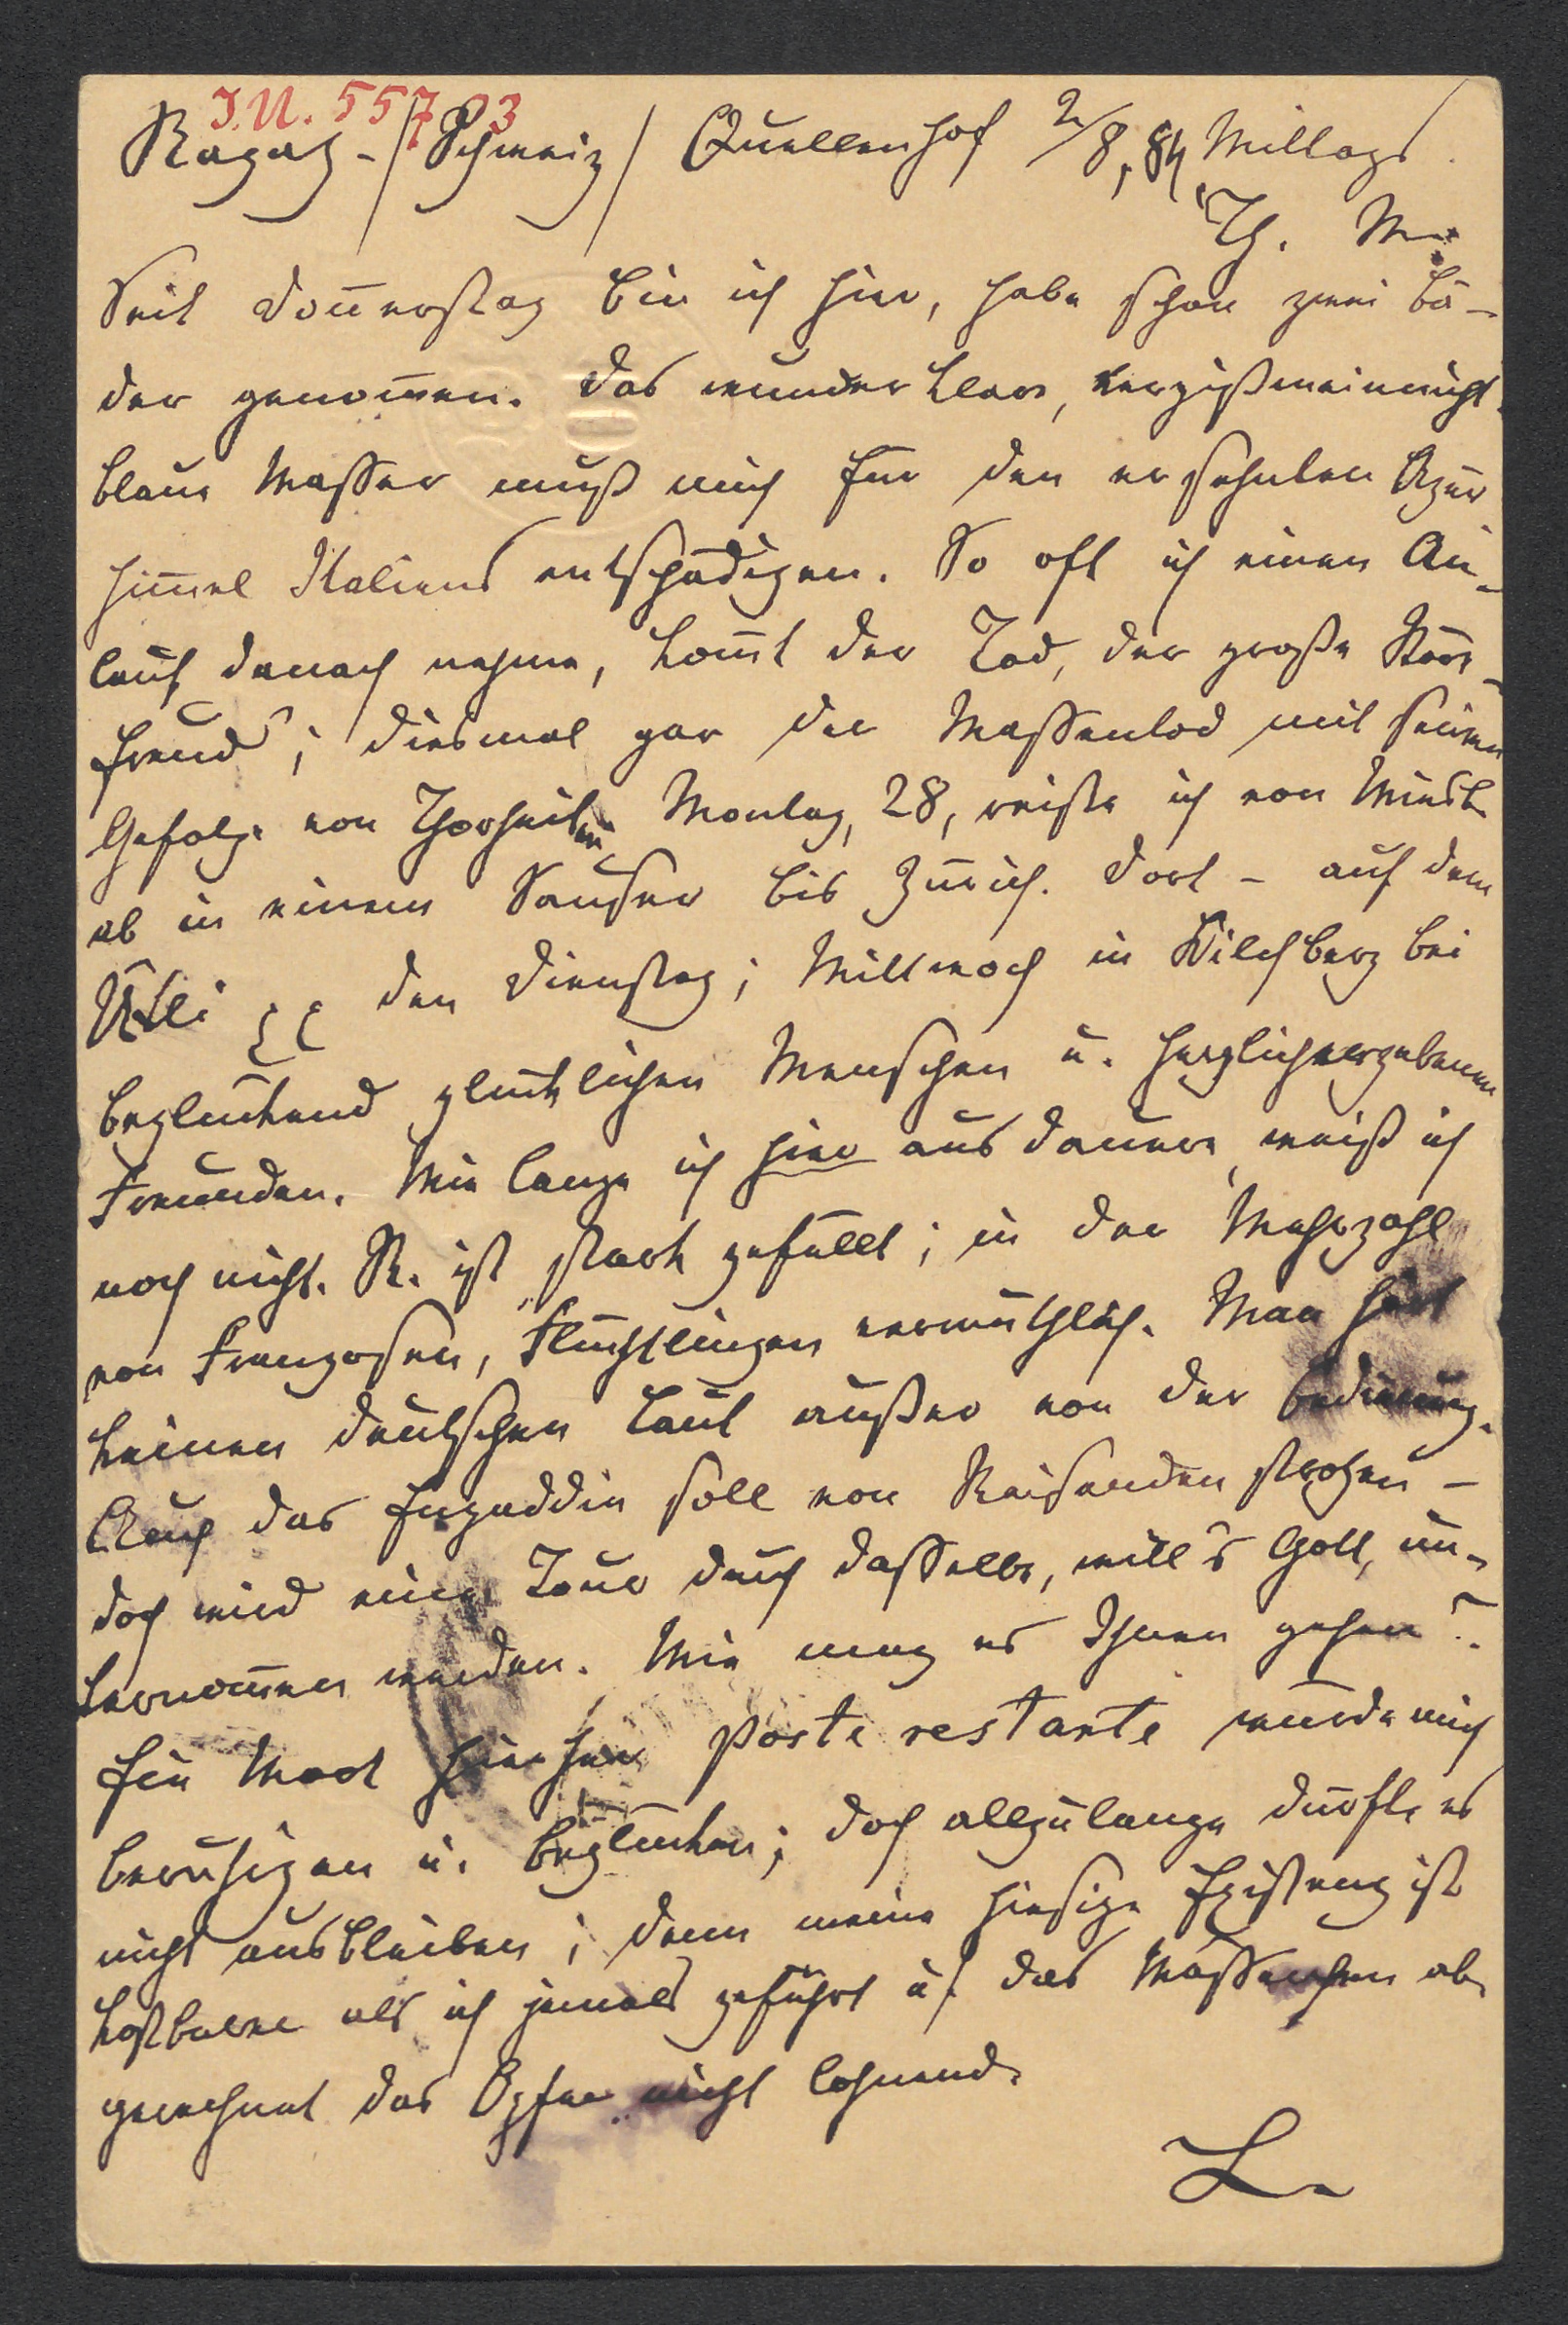 I.N. 55783
Ragaz - /Schweiz/ Quellenhof 2/8, 84, Mittags.
Th. M.
Seit Don̄erstag bin ich hier, habe schon zwei Bä-
der genom̄en. Das wunder klare, vergißmeinnicht
blaue Wasser muß mich für den ersehnten Azur
him̄el Italiens entschädigen. So oft ich einen An-
lauf danach nehme, kom̄t der Tod, der große Stören-
freud; diesmal gar der Massentod mit seinem
Gefolge von Thorheiten. Montag, 28, reiste ich von
ab in einem Sauser bis Zürich. Dort - auf dem
Ütli den Dienstag; Mittwoch in Kilchberg bei
beglückend glücklichen Menschen u. herzlichergebenen
Freunden. Wie lange ich hier ausdauere, weiß ich
noch nicht. R. ist stark gefüllt; in der Mehrzahl
von Franzosen, Flüchtlingen vermuthlich. Man hört
keinen deutschen Laut außer von der Bedienung.
Auch das Engaddin soll von Reisenden strotzen -
doch wird eine Tour durch dasselbe, will's Gott, un-
ternom̄en werden. Wie mag es Ihnen gehen?
Ein Wort hierher poste restante würde mich
beruhigen u. beglücken; doch allzulange dürfte es
nicht ausbleiben; denn meine hiesige Existenz ist
kostbarer als ich jemals geführt u. das Wasser ab-
gerechnet das Opfer nicht lohnend.
L.